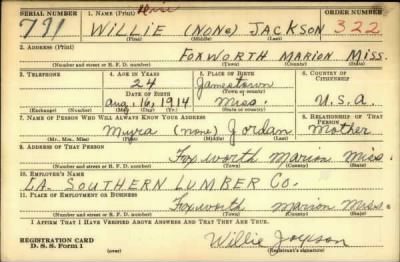 SERIAL NUMBER 1. NAME (Print) ORDER NUMBER
791 WILLIE (NONE) JACKSON 322
(First) (Middle) (Last)
2. ADDRESS (Print)
FOXWORTH MARION MISS.
(Number and street or R. F. D. number) (Town) (County) (State)
3. TELEPHONE 4. AGE IN YEARS 5. PLACE OF BIRTH 6. COUNTRY OF CITIZENSHIP
24 Jamestown
DATE OF BIRTH (Town or county)
Aug. 16, 1914 Miss. U.S.A.
(Exchange) (Number) (Mo.) (Day) (Yr.) (State or country)
7. NAME OF PERSON WHO WILL ALWAYS KNOW YOUR ADDRESS 8. RELATIONSHIP OF THAT PERSON
(none) Jordan Mother
(Mr., Mrs., Miss) (First) (Middle) (Last)
9. ADDRESS OF THAT PERSON
Foxworth Marion Miss
(Number and street or R. F. D. number) (Town) (County) (State)
10. EMPLOYER'S NAME
LA. SOUTHERN LUMBER CO.
11. PLACE OF EMPLOYMENT OR BUSINESS
Foxworth Marion Miss.
(Number and street or R. F. D. number) (Town) (County) (State)
I AFFIRM THAT I HAVE VERIFIED ABOVE ANSWERS AND THAT THEY ARE TRUE.
REGISTRATION CARD
D. S. S. Form 1 Willie Jackson
(Registrant's signature)